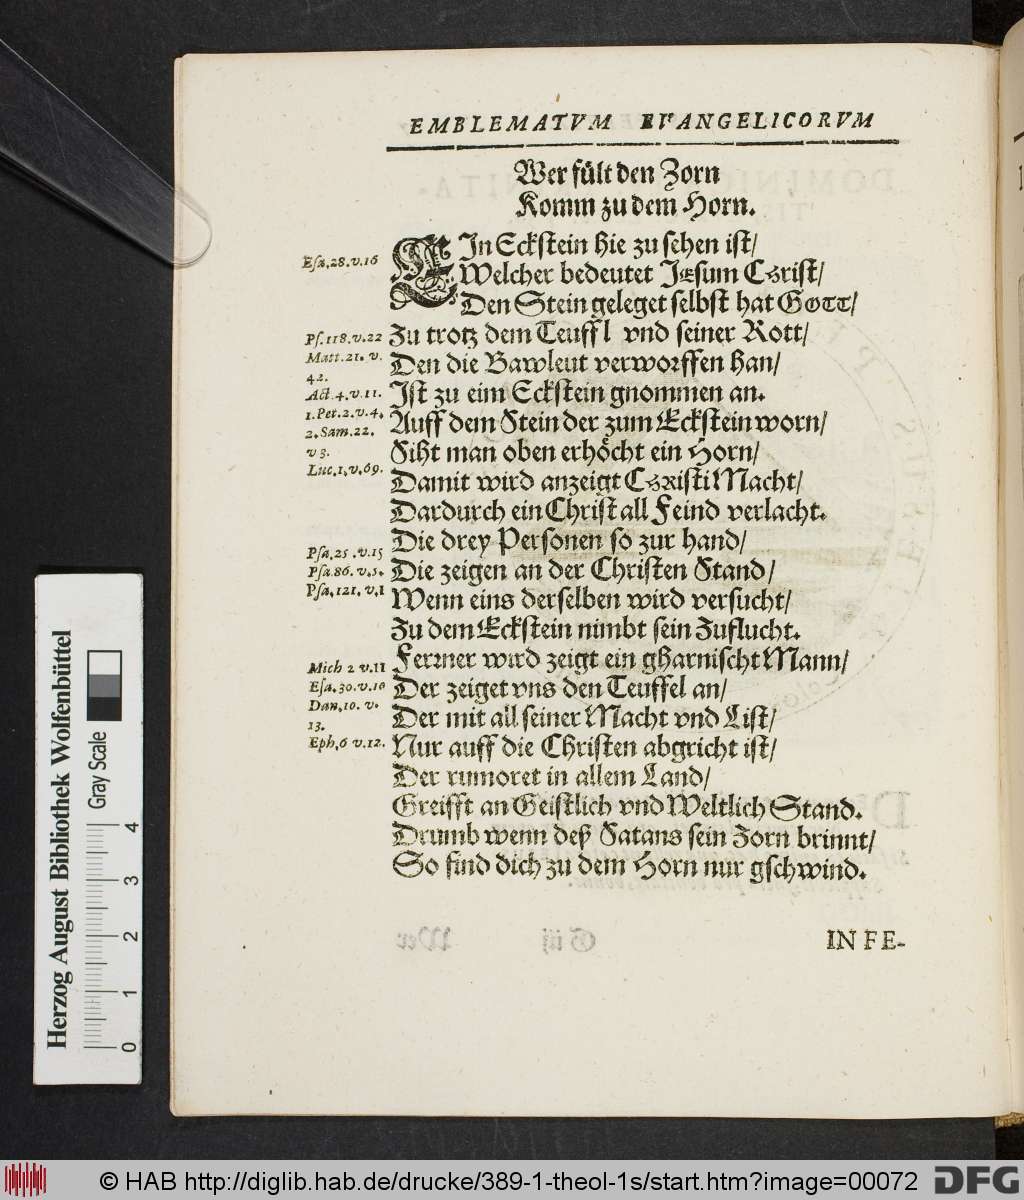 EMBLEMATVM EVANGELICORVM
Wer fült den Zorn
Komm zu dem Horn.
EIn Eckstein hie zu sehen ist/
Welcher bedeutet JEsum CHrist/
Den Stein geleget selbst hat GOTT/
Zu trotz dem Teuff l vnd seiner Rott/
Den die Bawleut verworffen han/
Ist zu eim Eckstein gnommen an.
Auff dem Stein der zum Eckstein worn/
Siht man oben erhöcht ein Horn/
Damit wird anzeigt CHRisti Macht/
Dardurch ein Christ all Feind verlacht.
Die drey Personen so zur hand/
Die zeigen an der Christen Stand/
Wenn eins derselben wird versucht/
Zu dem Eckstein nimbt sein Zuflucht.
Ferrner wird zeigt ein gharnischt Mann/
Der zeiget vns den Teuffel an/
Der mit all seiner Macht vnd List/
Nur auff die Christen abgricht ist/
Der rumoret in allem Land/
Greifft an Geistlich vnd Weltlich Stand.
Drumb wenn deß Satans sein Zorn brinnt/
So find dich zu dem Horn nur gschwind.
Esa.28.v.16
Ps.118.v.22
Matt.21. v.
42.
Act.4.v.11.
1.Pet.2.v.4.
2.Sam.22.
v 3.
Luc.1.v.69.
Psa.25.v.15
Psa.86.v.5.
Psa.121.v.1
Mich 2 v.11
Esa.30.v.10
Dan.10. v.
13.
Eph.6 v.12.
IN FE-
Herzog August Bibliothek Wolfenbüttel
Gray Scale
0 1 2 3 4
© HAB http://diglib.hab.de/drucke/389-1-theol-1s/start.htm?image=00072
DFG